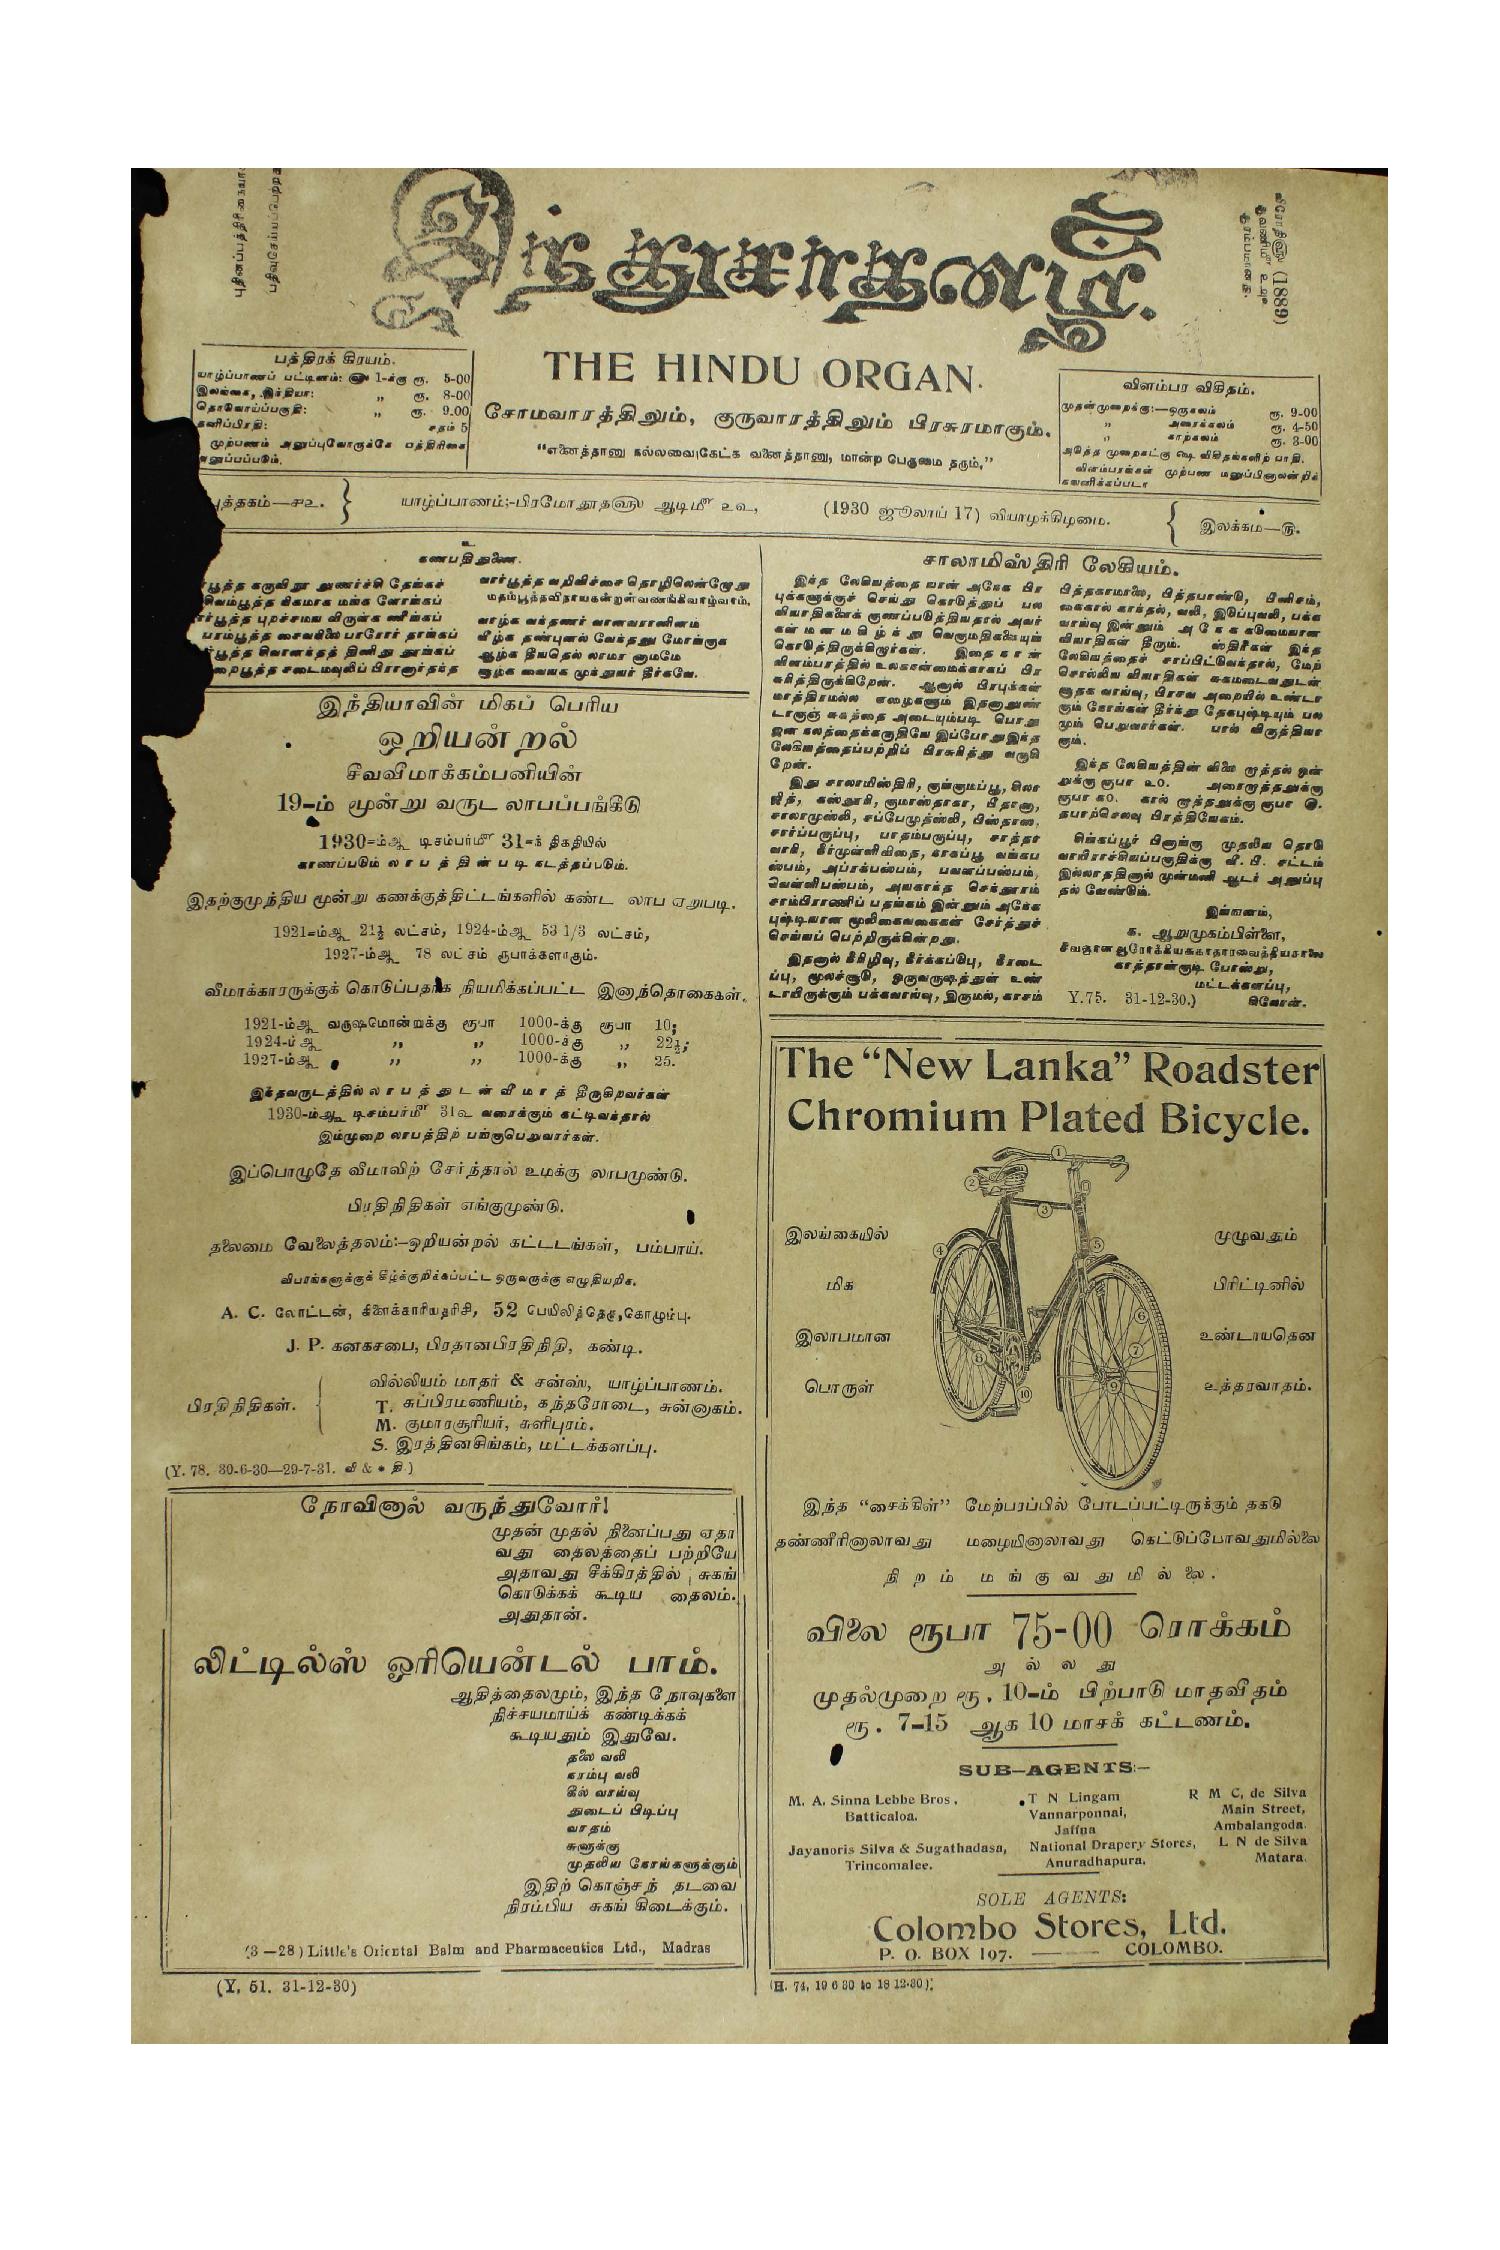 இந்துசாதனம்.
THE HINDU ORGAN.
சோமவாரத்திலும், குருவாரத்திலும் பிரசுரமாகும்.
"எனைத்தானு நல்லவைகேட்க வனைத்தானு, மான்ற பெருமை தரும்."
பத்திரக் கிரயம்.
யாழ்ப்பாணப் பட்டினம்: 1-க்கு ரூ. 5-00
இலங்கை, இந்தியா: ,, ரூ. 8-00
,, ரூ. 9.00
தனிப்பிரதி: சதம் 5
முற்பணம் அனுப்புவோருக்கே பத்திரிகை
அனுப்பப்படும்.
விளம்பர விகிதம்.
முதன்முறைக்கு:—ஒருகலம் ரூ. 9-00
,, அரைக்கலம் ரூ. 4-50
,, காற்கலம் ரூ. 3-00
புத்தகம்—௪௨.
யாழ்ப்பாணம்:-பிரமோதூதளு ஆடிமீ உ௳,
(1930 ஜூலாய் 17) வியாழக்கிழமை.
இலக்கம—௫.
கணபதி துணை.
வாழ்க வந்தணர் வானவரானினம்
வீழ்க தண்புனல் வேந்தனு மோங்குக
ஆழ்க தீயதெல் லாமர னாமமே
சூழ்க வையக முந்துயர் தீர்கவே.
இந்தியாவின் மிகப் பெரிய
ஒறியன்றல்
சீவவீமாக்கம்பனியின்
19-ம் மூன்று வருட லாபப்பங்கீடு
1930-ம்ஆ டிசம்பர்மீ 31-ந் திகதியில்
காணப்படும் லாபத்தின்படி நடத்தப்படும்.
இதற்குமுந்திய மூன்று கணக்குத்திட்டங்களில் கண்ட லாப ஏறுபடி.
1921-ம்ஆ 21½ லட்சம், 1924-ம்ஆ 53 1/3 லட்சம்,
1927-ம்ஆ 78 லட்சம் ரூபாக்களாகும்.
வீமாக்காரருக்குக் கொடுப்பதாக நியமிக்கப்பட்ட இனாந்தொகைகள்.
1921-ம்ஆ வருஷமொன்றுக்கு ரூபா 1000-க்கு ரூபா 10;
1924-ம்ஆ ,, ,, 1000-க்கு ,, 22½;
1927-ம்ஆ ,, ,, 1000-க்கு ,, 25.
இந்தவருடத்தில் லாபத்துடன் வீமாத் திருகிறவர்கள்
1930-ம்ஆ டிசம்பர்மீ 31௳ வரைக்கும் கட்டிவந்தால்
இம்முறை லாபத்திற் பங்குபெறுவார்கள்.
இப்பொழுதே வீமாவிற் சேர்ந்தால் உமக்கு லாபமுண்டு.
பிரதிநிதிகள் எங்குமுண்டு.
தலைமை வேலைத்தலம்:—ஒறியன்றல் கட்டடங்கள், பம்பாய்.
விபரங்களுக்குக் கீழ்க்குறிக்கப்பட்ட ஒருவருக்கு எழுதியறிக.
A. C. லோட்டன், கிளைக்காரியதரிசி, 52 பெயிலித்தெரு, கொழும்பு.
J. P. கனகசபை, பிரதானபிரதிநிதி, கண்டி.
பிரதிநிதிகள்.
வில்லியம் மாதர் & சன்ஸ், யாழ்ப்பாணம்.
T. சுப்பிரமணியம், கந்தரோடை, சுன்னாகம்.
M. குமாரசூரியர், சுளிபுரம்.
S. இரத்தினசிங்கம், மட்டக்களப்பு.
(Y. 78. 30-6-30—29-7-31. வி & * தி.)
நோவினால் வருந்துவோர்!
முதன் முதல் நினைப்பது ஏதா
வது தைலத்தைப் பற்றியே
அதாவது சீக்கிரத்தில் சுகங்
கொடுக்கக் கூடிய தைலம்.
அதுதான்.
லிட்டில்ஸ் ஓரியெண்டல் பாம்.
ஆதித்தைலமும், இந்த நோவுகளை
நிச்சயமாய்க் கண்டிக்கக்
கூடியதும் இதுவே.
தலை வலி
நரம்பு வலி
கீல் வாய்வு
துடைப் பிடிப்பு
வாதம்
சுளுக்கு
முதலிய நோய்களுக்கும்
இதிற் கொஞ்சந் தடவை
நிரம்பிய சுகங் கிடைக்கும்.
(3—28) Little's Oriental Balm and Pharmaceutics Ltd., Madras
(Y. 51. 31-12-30)
சாலாமிஸ்திரி லேகியம்.
இந்த லேகியத்தை யான் அநேக பிர
புக்களுக்குச் செய்து கொடுத்துப் பல
வியாதிகளைக் குணப்படுத்தியதால் அவர்
கள் மனமகிழ்ந்து வெகுமதிகளையுங்
கொடுத்திருக்கிறார்கள். இதை நான்
விளம்பரத்தில் உலகநன்மைக்காகப் பிர
சுரித்திருக்கிறேன். ஆனால் பிரபுக்கள்
மாத்திரமல்ல எழைகளும் இதனாலுண்
டாகுஞ் சுகத்தை அடையும்படி பொது
ஜன நலத்தைக்கருதியே இப்போது இந்த
லேகியத்தைப்பற்றிப் பிரசுரித்து வருகி
றேன்.
இது சாலாமிஸ்திரி, குங்குமப்பூ, கோ
சாம்பிராணிப் பதங்கம் இன்னும் அநேக
புஷ்டியான மூலிகைவகைகள் சேர்த்துச்
செய்யப் பெற்றிருக்கின்றது.
இதனால் நீரிழிவு, நீர்க்கடுப்பு, நீரடை
ப்பு, மூலச்சூடு, ஒருவருஷத்துள் உண்
டாயிருக்கும் பக்கவாய்வு, இருமல், காசம்
பித்தகாமாலை, பித்தபாண்டு, பீனிசம்,
கைகால் காந்தல், வலி, இடுப்புவலி, பக்க
வாய்வு இன்னும் அநேக கடுமையான
வியாதிகள் தீரும். ஸ்திரீகள் இந்த
லேகியத்தைச் சாப்பிட்டுவந்தால், மேற்
சொல்லிய வியாதிகள் சுகமடைவதுடன்
சூதக வாய்வு, பிரசவ அறையில் உண்டா
கும் நோய்கள் தீர்ந்து தேகபுஷ்டியும் பல
மும் பெறுவார்கள். பால் விருத்தியா
கும்.
இந்த லேகியத்தின் விலை றாத்தல் ஒன்
றுக்கு ரூபா ௨0. அரைறாத்தலுக்கு
ரூபா ௧0. கால் றாத்தலுக்கு ரூபா ௫.
தபாற்செலவு பிரத்தியேகம்.
சிங்கப்பூர் பினாங்கு முதலிய தொடு
வாயிராச்சியப்பகுதிக்கு வீ. பி. சட்டம்
இல்லாததினால் முன்மணி ஆடர் அனுப்பு
தல் வேண்டும்.
இங்ஙனம்,
க. ஆறுமுகம்பிள்ளை,
சிவஞான ஆரோக்கியசுகாதாரவைத்தியசாலை
காத்தான்குடி போஸ்து,
மட்டக்களப்பு,
சிலோன்.
Y. 75. 31-12-30.)
The "New Lanka" Roadster
Chromium Plated Bicycle.
இலங்கையில்
மிக
இலாபமான
பொருள்
முழுவதும்
பிரிட்டினில்
உண்டாயதென
உத்தரவாதம்.
இந்த "சைக்கிள்" மேற்பரப்பில் போடப்பட்டிருக்கும் தகடு
தண்ணீரினாலாவது மழையினாலாவது கெட்டுப்போவதுமில்லை
நிறம் மங்குவதுமில்லை.
விலை ரூபா 75-00 ரொக்கம்
அல்லது
முதல்முறை ரூ. 10-ம் பிற்பாடு மாதவீதம்
ரூ. 7-15 ஆக 10 மாசக் கட்டணம்.
SUB-AGENTS:-
M. A. Sinna Lebbe Bros.,
Batticaloa.
T N Lingam
Vannarponnai,
Jaffna
R M C, de Silva
Main Street,
Ambalangoda.
Jayanoris Silva & Sugathadasa,
Trincomalee.
National Drapery Stores,
Anuradhapura.
L N de Silva
Matara.
SOLE AGENTS:
Colombo Stores, Ltd.
P. O. BOX 197. —— COLOMBO.
(H. 74, 19 6 30 to 18 12-30).